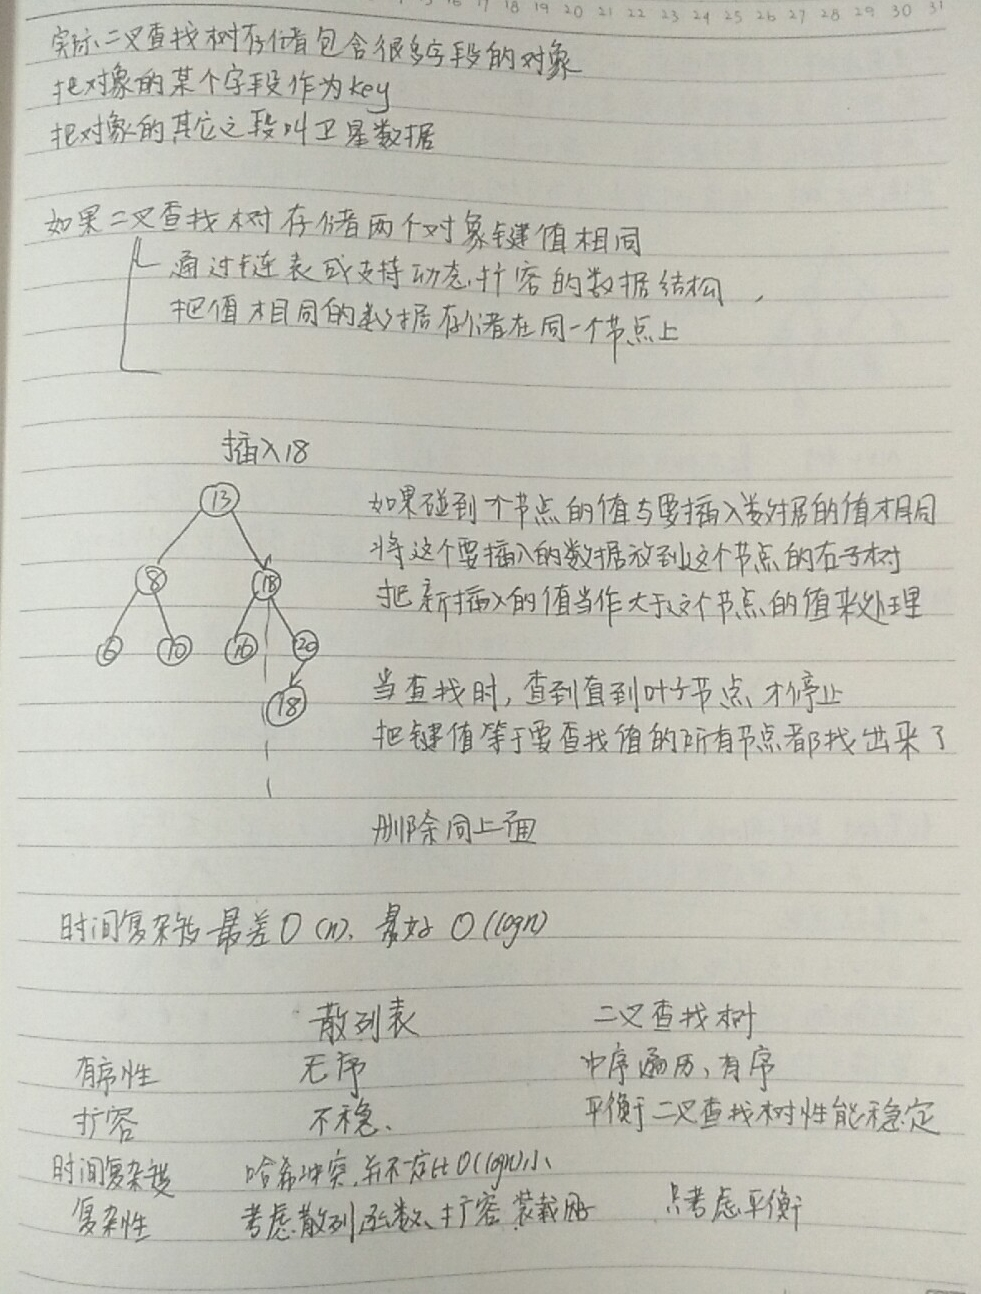 15 16 17 18 19 20 21 22 23 24 25 26 27 28 29 30 31
实际二叉查找树存储包含很多字段的对象
把对象的某个字段作为key
把对象的其它之段叫卫星数据
如果二叉查找树存储两个对象键值相同
通过链表或支持动态扩容的数据结构,
把值相同的数据存储在同一个节点上
插入18
13
如果碰到个节点的值与要插入数据的值相同
将这个要插入的数据放到这个节点的右子树
8 18
把新插入的值当作大于这个节点的值来处理
6 10 16 20
当查找时,查到直到叶子节点,才停止
18
把键值等于要查找值的所有节点都找出来了
删除同上面
时间复杂度 最差O(n)、最好 O(logn)
散列表 二叉查找树
有序性 无序 中序遍历,有序
扩容 不稳、 平衡二叉查找树性能稳定
时间复杂度 哈希冲突,并不一定比O(logn)小
复杂性 考虑散列函数、扩容、装载因子 只考虑平衡